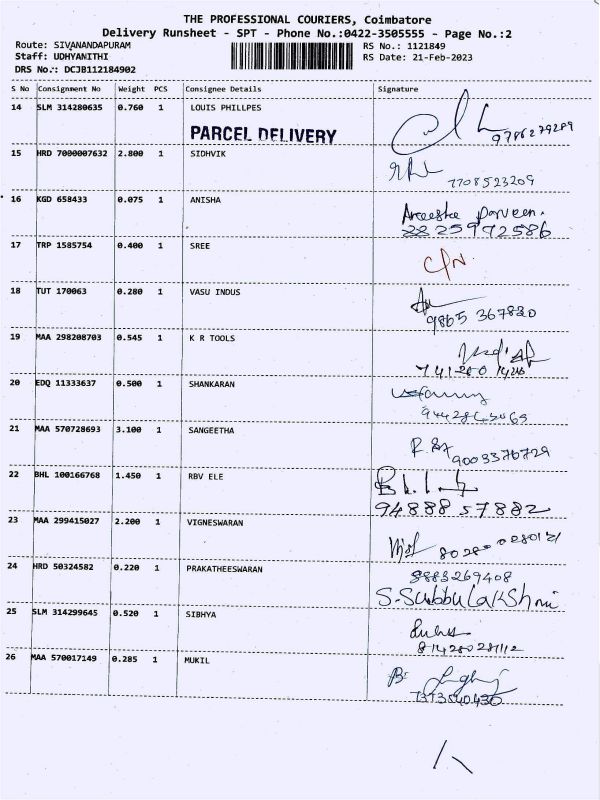 THE PROFESSIONAL COURIERS, Coimbatore
Delivery Runsheet - SPT - Phone No.:0422-3505555 - Page No.:2
Route: SIVANANDAPURAM RS No.: 1121849
Staff: UDHYANITHI RS Date: 21-Feb-2023
DRS No.: DCJB112184902
S No Consignment No Weight PCS Consignee Details Signature
14 SLM 314280635 0.760 1 LOUIS PHILLPES
PARCEL DELIVERY 9786279289
15 HRD 7000007632 2.800 1 SIDHVIK
7708523209
16 KGD 658433 0.075 1 ANISHA
Parveen.
17 TRP 1585754 0.400 1 SREE
C/N
18 TUT 170063 0.280 1 VASU INDUS
9865 367820
19 MAA 298208703 0.545 1 K R TOOLS
20 EDQ 11333637 0.500 1 SHANKARAN
21 MAA 570728693 3.100 1 SANGEETHA
9003376729
22 BHL 100166768 1.450 1 RBV ELE
94888 57882
23 MAA 299415027 2.200 1 VIGNESWARAN
24 HRD 50324582 0.220 1 PRAKATHEESWARAN
9883269408
S.Subbulakshmi
25 SLM 314299645 0.520 1 SIBHYA
26 MAA 570017149 0.285 1 MUKIL